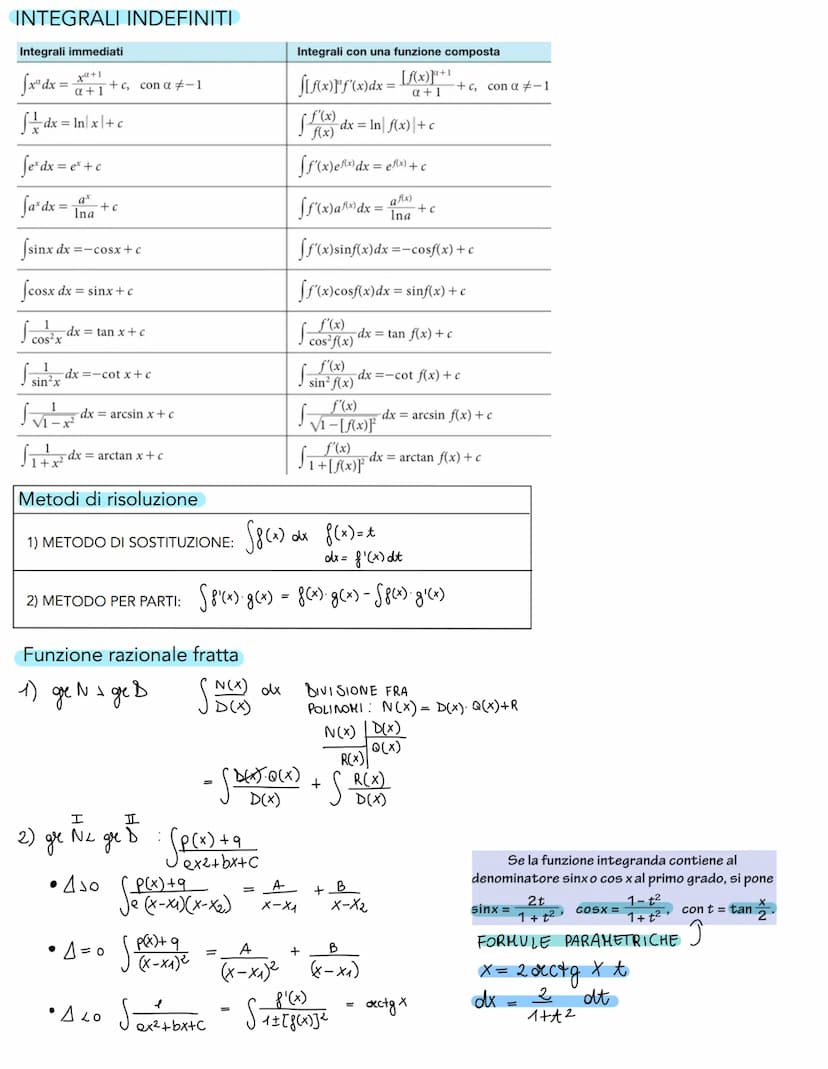 INTEGRALI INDEFINITI
Integrali immediati | Integrali con una funzione composta
∫xᵅdx = xᵅ⁺¹/(α+1) + c, con α ≠ −1 | ∫[f(x)]ᵅf'(x)dx = [f(x)]ᵅ⁺¹/(α+1) + c, con α ≠ −1
∫1/x dx = ln|x| + c | ∫f'(x)/f(x) dx = ln|f(x)| + c
∫eˣdx = eˣ + c | ∫f'(x)e^f(x)dx = e^f(x) + c
∫aˣdx = aˣ/lna + c | ∫f'(x)a^f(x)dx = a^f(x)/lna + c
∫sinx dx = −cosx + c | ∫f'(x)sinf(x)dx = −cosf(x) + c
∫cosx dx = sinx + c | ∫f'(x)cosf(x)dx = sinf(x) + c
∫1/cos²x dx = tan x + c | ∫f'(x)/cos²f(x) dx = tan f(x) + c
∫1/sin²x dx = −cot x + c | ∫f'(x)/sin²f(x) dx = −cot f(x) + c
∫1/√(1−x²) dx = arcsin x + c | ∫f'(x)/√(1−[f(x)]²) dx = arcsin f(x) + c
∫1/(1+x²) dx = arctan x + c | ∫f'(x)/(1+[f(x)]²) dx = arctan f(x) + c
Metodi di risoluzione
1) METODO DI SOSTITUZIONE: ∫f(x) dx f(x)=t
dx = f'(x)dt
2) METODO PER PARTI: ∫f'(x)·g(x) = f(x)·g(x) − ∫f(x)·g'(x)
Funzione razionale fratta
1) gr N > gr D ∫N(x)/D(x) dx DIVISIONE FRA
POLINOMI: N(x) = D(x)·Q(x)+R
N(x) | D(x)
R(x) | Q(x)
= ∫D(x)·Q(x)/D(x) + ∫R(x)/D(x)
I II
2) gr N < gr D : ∫p(x)+q/ax2+bx+c
• Δ>0 ∫p(x)+q/a(x−x1)(x−x2) = A/x−x1 + B/x−x2
• Δ=0 ∫p(x)+q/(x−x1)² = A/(x−x1)² + B/(x−x1)
• Δ<0 ∫1/ax²+bx+c = ∫f'(x)/1±[f(x)]² = arctg x
Se la funzione integranda contiene al
denominatore sinx o cos x al primo grado, si pone
sinx = 2t/1+t², cosx = 1−t²/1+t², con t = tan x/2.
FORMULE PARAMETRICHE
x = 2 arctg x t
dx = 2/1+t2 dt